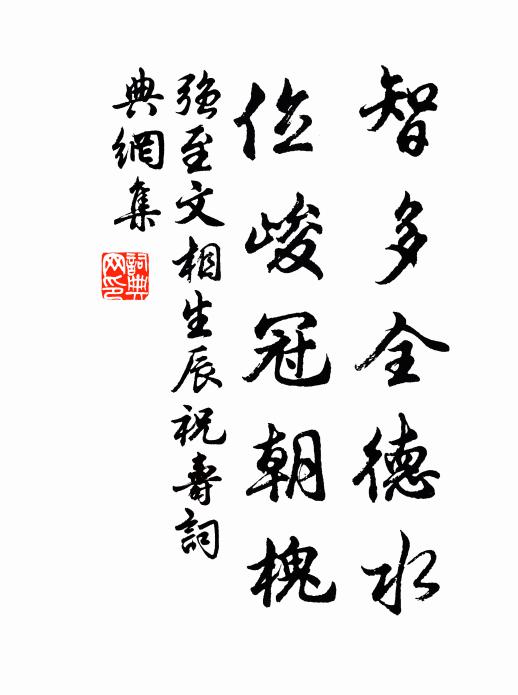 智多全德水
位峻冠朝槐
強至文相生辰祝壽詞
典網集
詞典
网印